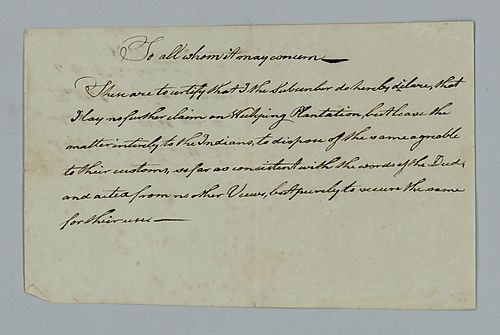 To all whom it may concern
These are to certify that I the Subscriber do hereby declare, that
I lay no further claim on Plantation, but leave the
matter intirely to the Indians, to dispose of the same agreable
to their customs, so far as consistent with the words of the Deed,
and acted from no other Views, but purely to secure the same
for their uses